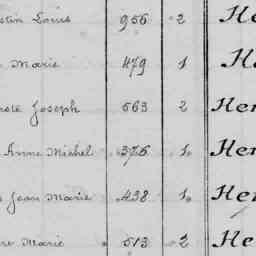 stin Louis 956 2 He
Marie 479 1 He
Joseph 563 2 Her
Anne Michel 375 1 Her
Jean Marie 438 1 Her
Marie 513 2 He